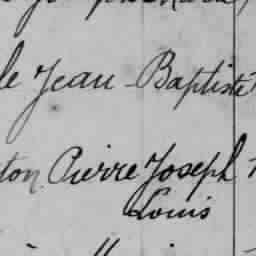 le Jean-Baptiste
ton Pierre Joseph
Louis